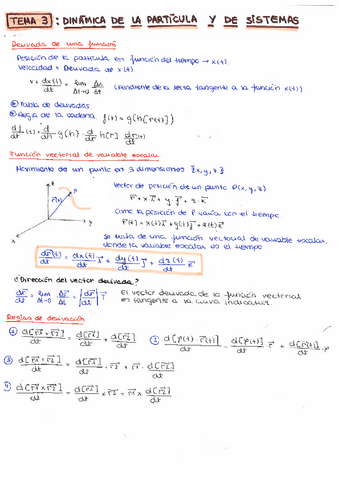 TEMA 3: DINÁMICA DE LA PARTÍCULA Y DE SISTEMAS
Derivada de una función
Posición de la partícula en función del tiempo → x(t).
Velocidad = Derivada de x(t)
v = dx(t)/dt = lim Δt→0 Δx/Δt (Pendiente de la recta tangente a la función x(t))
Tabla de derivadas
Regla de la cadena f(t) = g(h[r(t)])
df/dt (t) = d/dh g(h) · d/dr h(r) · dr(t)/dt
Función vectorial de variable escalar
Movimiento de un punto en 3 dimensiones {x, y, z}
Vector de posición de un punto P(x, y, z)
r = x·i + y·j + z·k
Como la posición de P varía con el tiempo
r(t) = x(t)i + y(t)j + z(t)k
Se trata de una función vectorial de variable escalar,
donde la variable escalar es el tiempo
z
P
r(t)
y
x
dr(t)/dt = dx(t)/dt i + dy(t)/dt j + dz(t)/dt k
¿Dirección del vector derivada?
dr/dt = lim Δt→0 Δr/Δt = |dr/dt|
El vector derivada de la función vectorial
es tangente a la curva indicatriz.
Reglas de derivación
1 d[r1 + r2]/dt = d[r1]/dt + d[r2]/dt
2 d[p(t) · r(t)]/dt = d[p(t)]/dt · r + d[r(t)]/dt · p
3 d[r1 · r2]/dt = d[r1]/dt · r2 + r1 · d[r2]/dt
4 d[r1 × r2]/dt = d[r1]/dt × r2 + r1 × d[r2]/dt